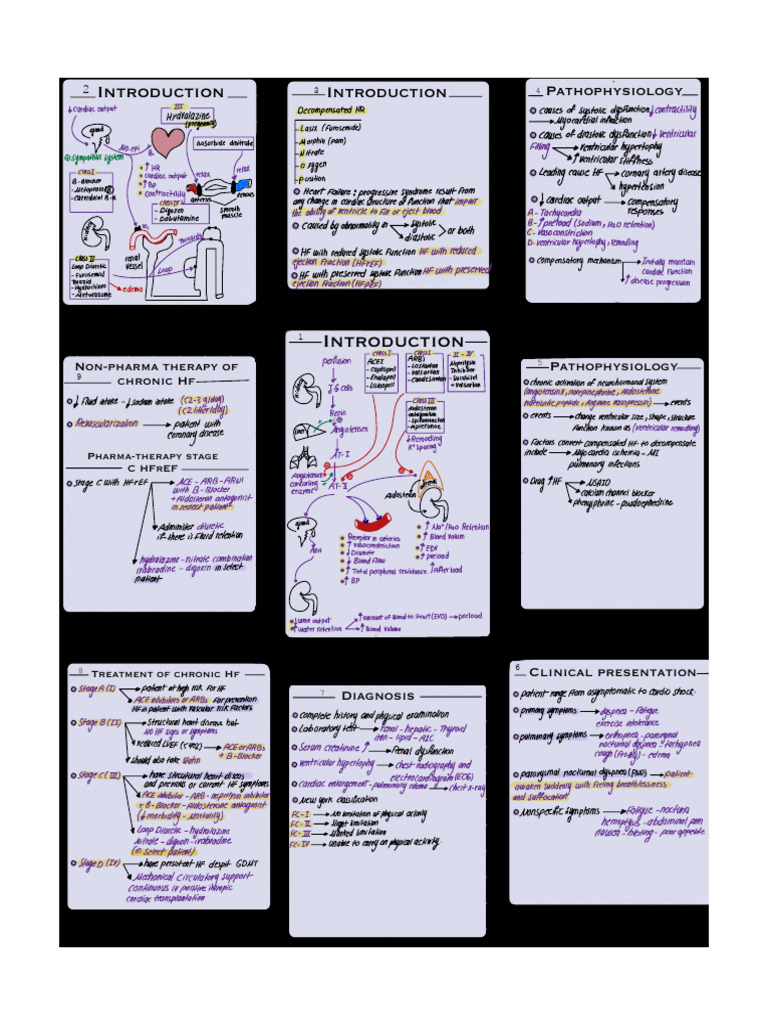 2
INTRODUCTION
↓Cardiac output
gland
NO.epi
⊕ sympathic system
III
Hydralazine
(pregnancy)
Isosorbide dinitrate
↑ HR
↑ cardiac output
↑ BP
↑ contractility
relax
relax
arteries
venous
smooth
muscle
Class I
B-Blocker
- Metoprolol
- Carvedilol
Class IV
- Digoxin
- Dobutamine
Class II
Loop Diuretic
- Furosemid
Thiazid
- Hydrochloro
- Acetorazone
edema
renal
vessel
Loop
3
INTRODUCTION
Decompensated HR
Lasix (Furosemide)
Morphin (pain)
Nitrate
Oxygen
Position
Heart Failure: progressive syndrome result from
any change in cardiac structure or function that impair
the ability of ventricle to fill or eject blood
Caused by abnormality in systolic
diastolic
or both
HF with reduced systolic Function HF with reduced
ejection Fraction (HFrEF)
HF with preserved systolic Function HF with preserved
ejection Fraction (HFpEF)
4
PATHOPHYSIOLOGY
causes of systolic dysfunction ↓contractility
→ Myocardial infraction
causes of diastolic dysfunction ↓ ventricular
filling → ventricular hypertophy
↑ Ventricular stiffness
Leading cause HF → cornary artery disease
hypertension
↓ cardiac output → compensatory
responses
A- Tachycardia
B- ↑ preload (sodium, H2O retention)
C- Vasoconstriction
D- ventricular hypertophy, remodling
compensatory mechanism → Initially maintain
cardiac function
↑ disease progression
NON-PHARMA THERAPY OF
9
CHRONIC HF
↓ Fluid intake - ↓ sodium intake (<2-3 g/day)
(<2 liter/day)
Revascularization → patient with
coronary disease
PHARMA-THERAPY STAGE
C HFREF
Stage C with HFrEF → ACE - ARB - ARNI
with B-Blocker
+ Aldosteron antagonist
in select patient
Administer diuretic
if there is Fluid retention
hydrolazine-nitrate combination
ivabradine - digoxin in select
patient
1
INTRODUCTION
perfusion
kidney
↓ J.G cells
Renin
Liver
Angiotensen
↓ AT-I
Angiotensen
converting
enzyme
AT-II
Class I
ACEI
- Captopril
- Enalapril
- Lisinopril
Class I
ARBs
- Losartan
- Valsartan
- Candesartan
II - IV
Neprilysin
Inhibitor
- Sacubitril
+ Valsartan
Class III
Aldosteron
antagonist
- Spironolacton
- Eplerenone
↓Remodling
K+ sparing
adrenal
Aldosteron
gland
ADH
↑ Na+/H2O Retention
↑ Blood Volum
↑ EDV
↑ preload
Receptor in arteries
↑ Vasoconstriction
↓ Diametre
↓ Blood Flow
↑ Total peripheral resistance ↑ Afterload
↑ BP
↓ urine output
↑ water retention
↑ amount of Blood to Heart (EVD) → preload
↑ Blood Volume
5
PATHOPHYSIOLOGY
chronic activation of neurohormonal system
(angiotensin, norepinephrine, Aldosteone
natriuetic peptide, Arginine Vasopressin) → events
events → change ventricular size, shape, structure
Anction known as (ventricular remodling)
Factors convert compensated HF to decompensate
include → Myo cardia ischemia - MI
pulmonary infections
Drug ↑HF → NSAID
calcium channel blocker
phenylphrine - pseudoephedrine
8
TREATMENT OF CHRONIC HF
Stage A (I) → patient at high risk for HF
ACE inhibitors or ARBs for prevention
HF in patient with vascular risk factors
Stage B (II) → Structural heart disease but
NO HF signs or symptoms
reduced LVEF (<40%) → ACE or ARBs
+ B-Blocker
should also take statin
Stage C (III) → have structural heart diseas
and previous or current HF symptoms
ACE inhibitor - ARB - neprilysin inhibitor
+ B-Blocker - Aldosterone antagonist
(↓ morbidity - Mortality)
Loop Diuretic - hydralazine
Nitrate - digoxin - ivabradine
(in select patient)
Stage D (IV) → have persistant HF despit GDMT
Mechanical Circulatory support
Continuous IV positive intropic
cardiac transplantation
7
DIAGNOSIS
complete history and physical examination
Laboratory test → renal - hepatic - Thyroid
iron - lipid - A1C
Serum creatinine ↑ → Renal dysfunction
ventricular hypertophy → chest radiography and
electrocardiogram (ECG)
cardiac enlargement - pulmonary edema → chest x-ray
New york classification
FC-I → No limitation of physical activity
FC-II → Slight limitation
FC-III → Marked limitation
FC-IV → Unable to carry on physical activity
6
CLINICAL PRESENTATION
patient range from asymptomatic to cardio shock.
primary symptoms → dyspnea - Fatigue
exercise intolerance
pulmunary symptoms → orthopnea - paroxymal
nocturnal dyspnea - tachypnea
cough (Frothy) - edema
paroxymal nocturnal dyspnea (PND) → patient
awaken suddenly with feeling breathlessness
and suffocation
Nonspecific symptoms → Fatigue - nocturia
hemoptysis - abdominal pain
nausea - bloating - poor appetite